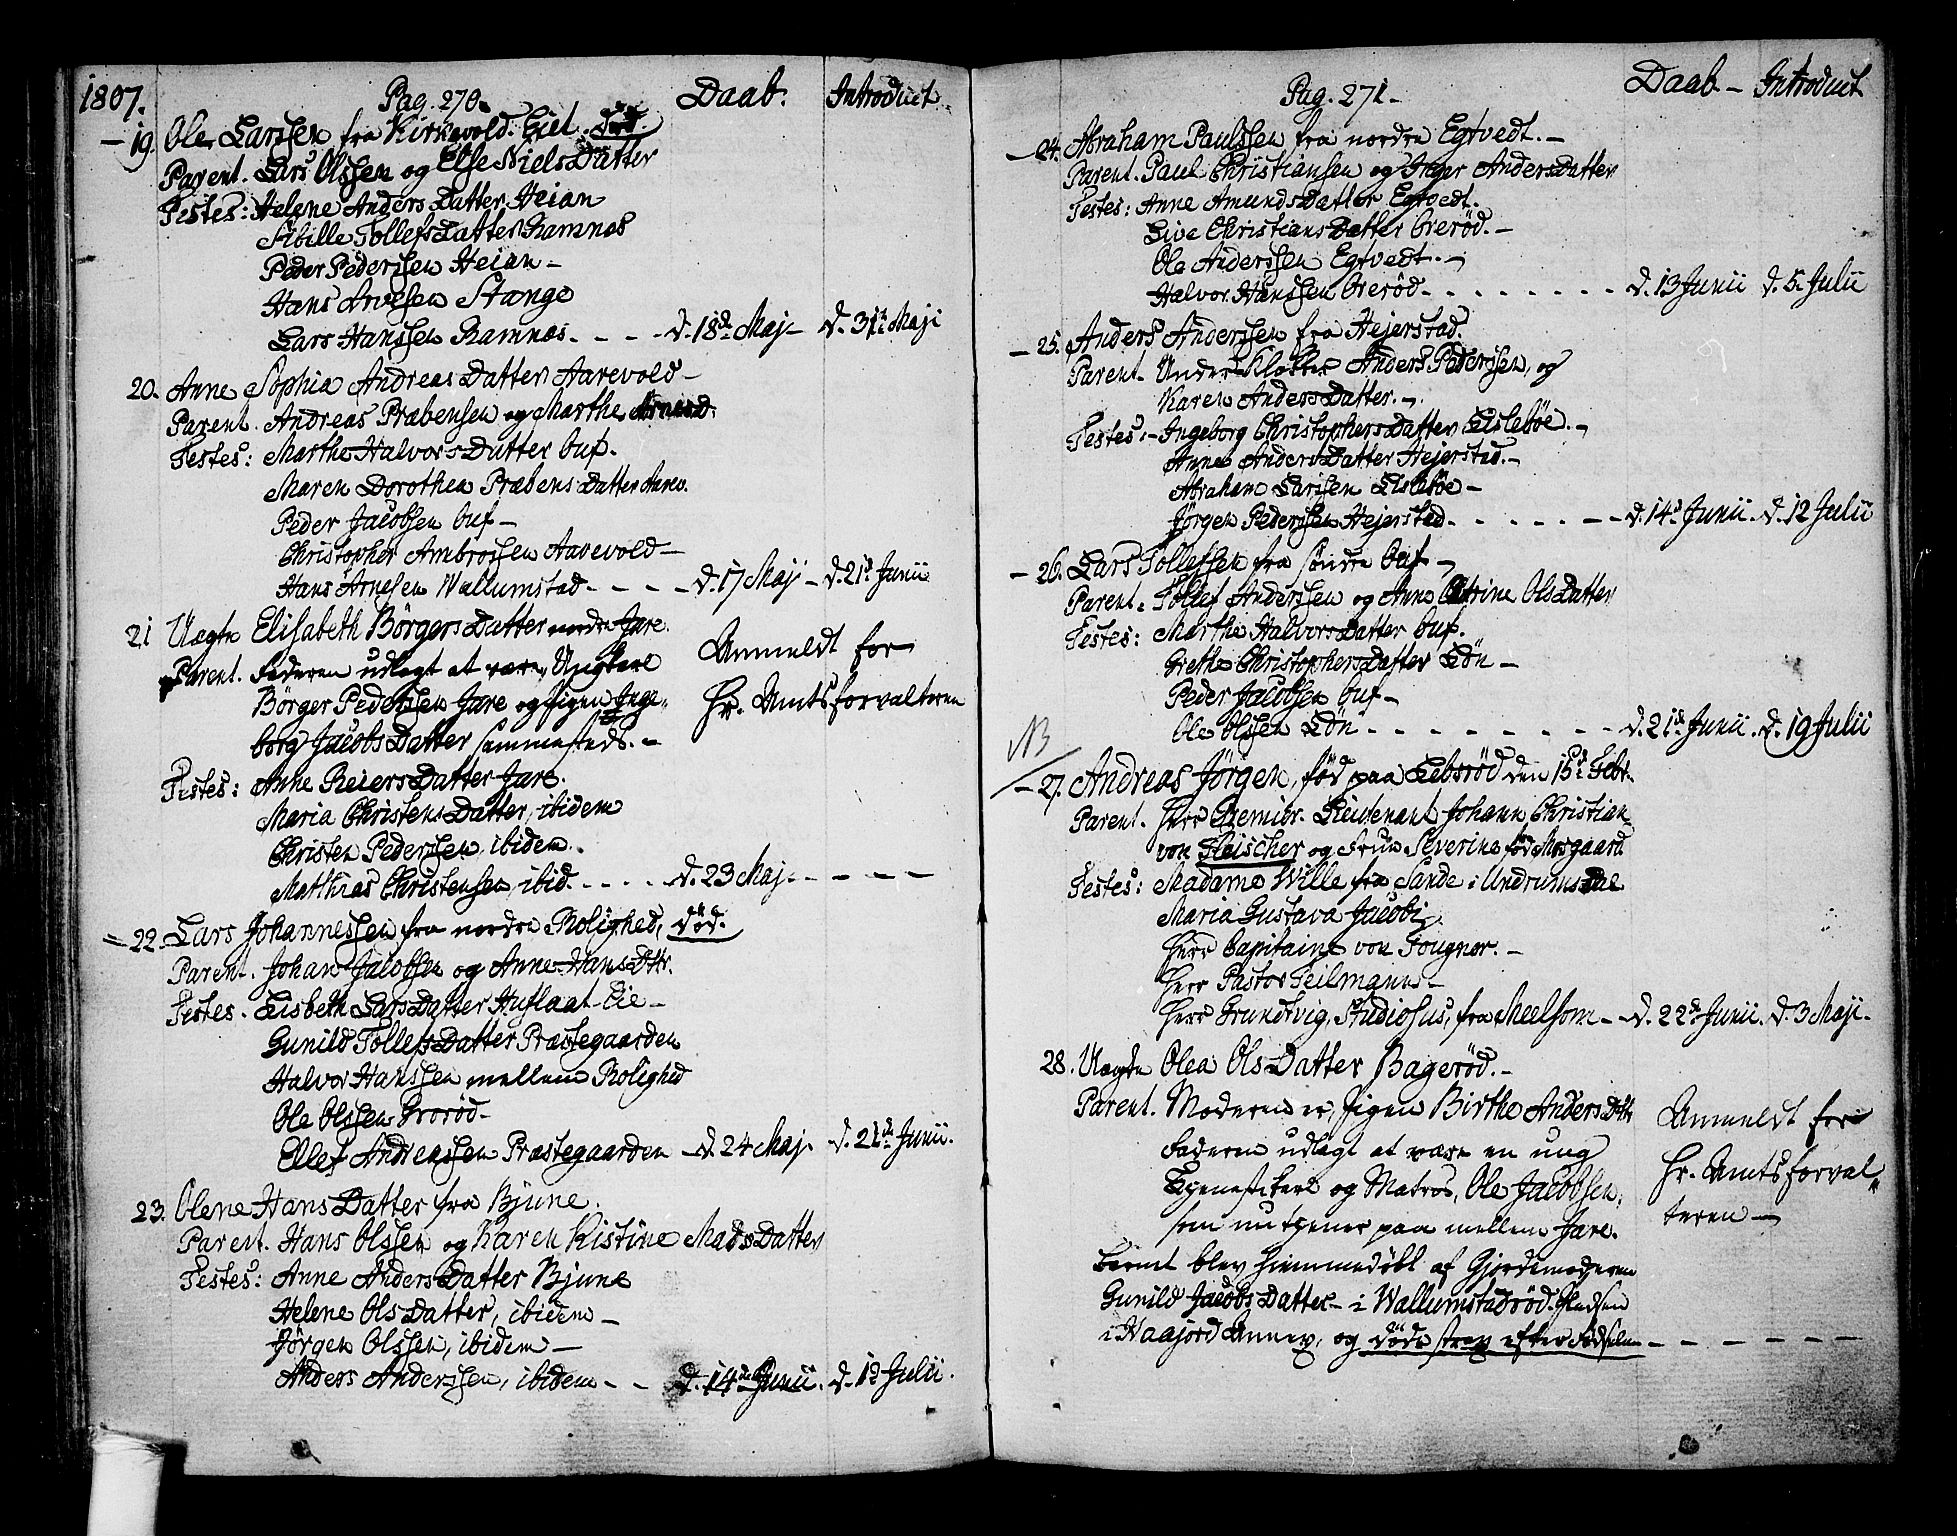 1807.
Pag. 270. Daab. Introduct.
19. Ole Larssen fra Kirkevold. Eiet. død
Parent. Lars Olssen og Else NielsDatter
Testes: Helene AndersDatter Heian
Sibille TollefsDatter Ramnæs
Peder Pederssen Heian –
Hans Arvesen Stange
Lars Hanssen Ramnæs. - - - - d. 18de Maj – d. 31te Maji
20. Anne Sophia AndreasDatter Aarevold –
Parent. Andreas Præbensen og Marthe
Testes: Marthe HalvorsDatter Buf.
Maren Dorothea PræbensDatter Aarev.
Peder Jacobsen Buf –
Christopher Ambrossen Aarevold –
Hans Arnesen Wallumstad - - - - d. 17 Maji – d. 21de Junii
21 Uægte Elisabeth BörgersDatter nordre Jare.
Parent. Faderen udlagt at være, Ungkarl
Börger Pederssen Jare og Pigen Inge-
borg JacobsDatter sammesteds. –
Anmeldt for
Hr. Amtsforvalteren
Testes: Anne ReiersDatter Jare.
Maria ChristensDatter, ibidem
Christen Pederssen, ibidem.
Matthias Christensen, ibid. - - - - d. 23 Maj. - - - -
22. Lars Johannessen fra nordre Rolighed, død.
Parent. Johan Jacobsen og Anne HansDttr.
Testes. Lisbeth LarsDatter Huflaat-Eie –
Gunild TollefsDatter Præstegaarden
Halvor Hanssen mellem Rolighed
Ole Olssen Brorød –
Ellef Andreassen Præstegaarden – d. 24 Maj. d. 21de Junii.
23. Olene HansDatter fra Bjune.
Parent. Hans Olssen og Karen Kistine MadsDatter
Testes: Anne AndersDatter Bjune
Helene OlsDatter, ibidem –
Jörgen Olssen, ibidem –
Anders Anderssen, ibidem - - d. 14de Junii. d. 1ste Julii.
Pag. 271. Daab – Introduct.
24. Abraham Paulssen fra nordre Egtvedt. –
Parent. Paul Christiansen og Inger AndersDatter
Testes: Anne AmundsDatter Egtvedt.
Live ChristiansDatter Orerød. –
Ole Anderssen Egtvedt. –
Halvor Hanssen Orerød - - - - - - - - d. 13 Junii d. 5. Julii
25. Anders Anderssen fra Hejerstad.
Parent. Under-Klokker Anders Pederssen, og
Karen AndersDatter. –
Testes: – Ingeborg ChristophersDatter Lisleböe. –
Anne AndersDatter Hejerstad. –
Abraham Larssen Lisleböe –
Jörgen Pederssen Hejerstad - - - - - - d. 14de Junii. d. 12 Julii
26. Lars Tollefsen fra søndre Buf –
Parent. Tollef Anderssen og Anne Catrine OlsDatter
Testes: Marthe HalvorsDatter Buf.
Grethe ChristophersDatter Løn –
Peder Jacobsen Buf –
Ole Olssen Løn - - - - - - - - d. 21de Junii. d. 19 Julii
NB
27. Andreas Jörgen, fød paa Lebsrød den 15de Febr.
Parent. Herr Premier-Lieutenant Johann Christian
von Fleischer og Frue Severine fød Mosgaard
Testes: Madame Wille fra Sande i UndrumsDal
Maria Gustava Jacobi
Herr Capitaine von Fougner. –
Herr Pastor Teilmann –
Herr Grundtvig, Studiosus, fra Meelsom – d. 22de Junii. d. 3 Maji.
28. Uægte Olea OlsDatter Bagerød. –
Parent. Moderen er, Pigen Birthe AndersDttr
Faderen udlagt at være en ung
Tjenestekarl og Matros, Ole Jacobsen,
som nu tjener paa mellem Jare.
Anmeldt for
Hr. Amtsforval-
teren –
Barnet blev hiemmedøbt af Gjordemoderen
Gunild JacobsDatter – i Wallumstadrød.
i Haajord Annex, og døde strax efter Fødselen - - - - - -